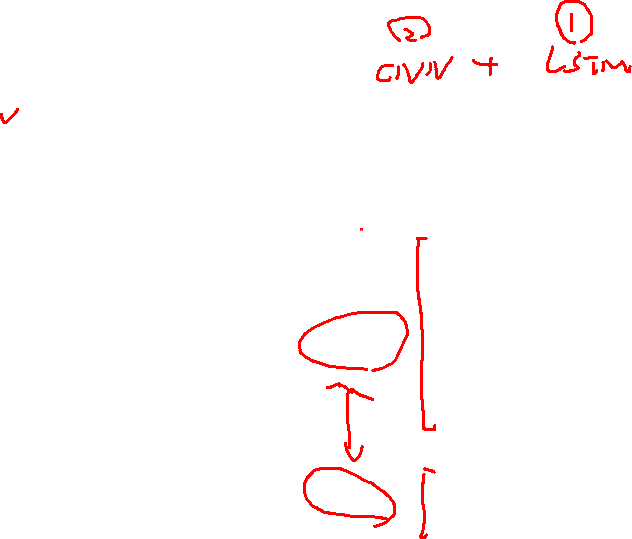 2 1
CNN + LSTM